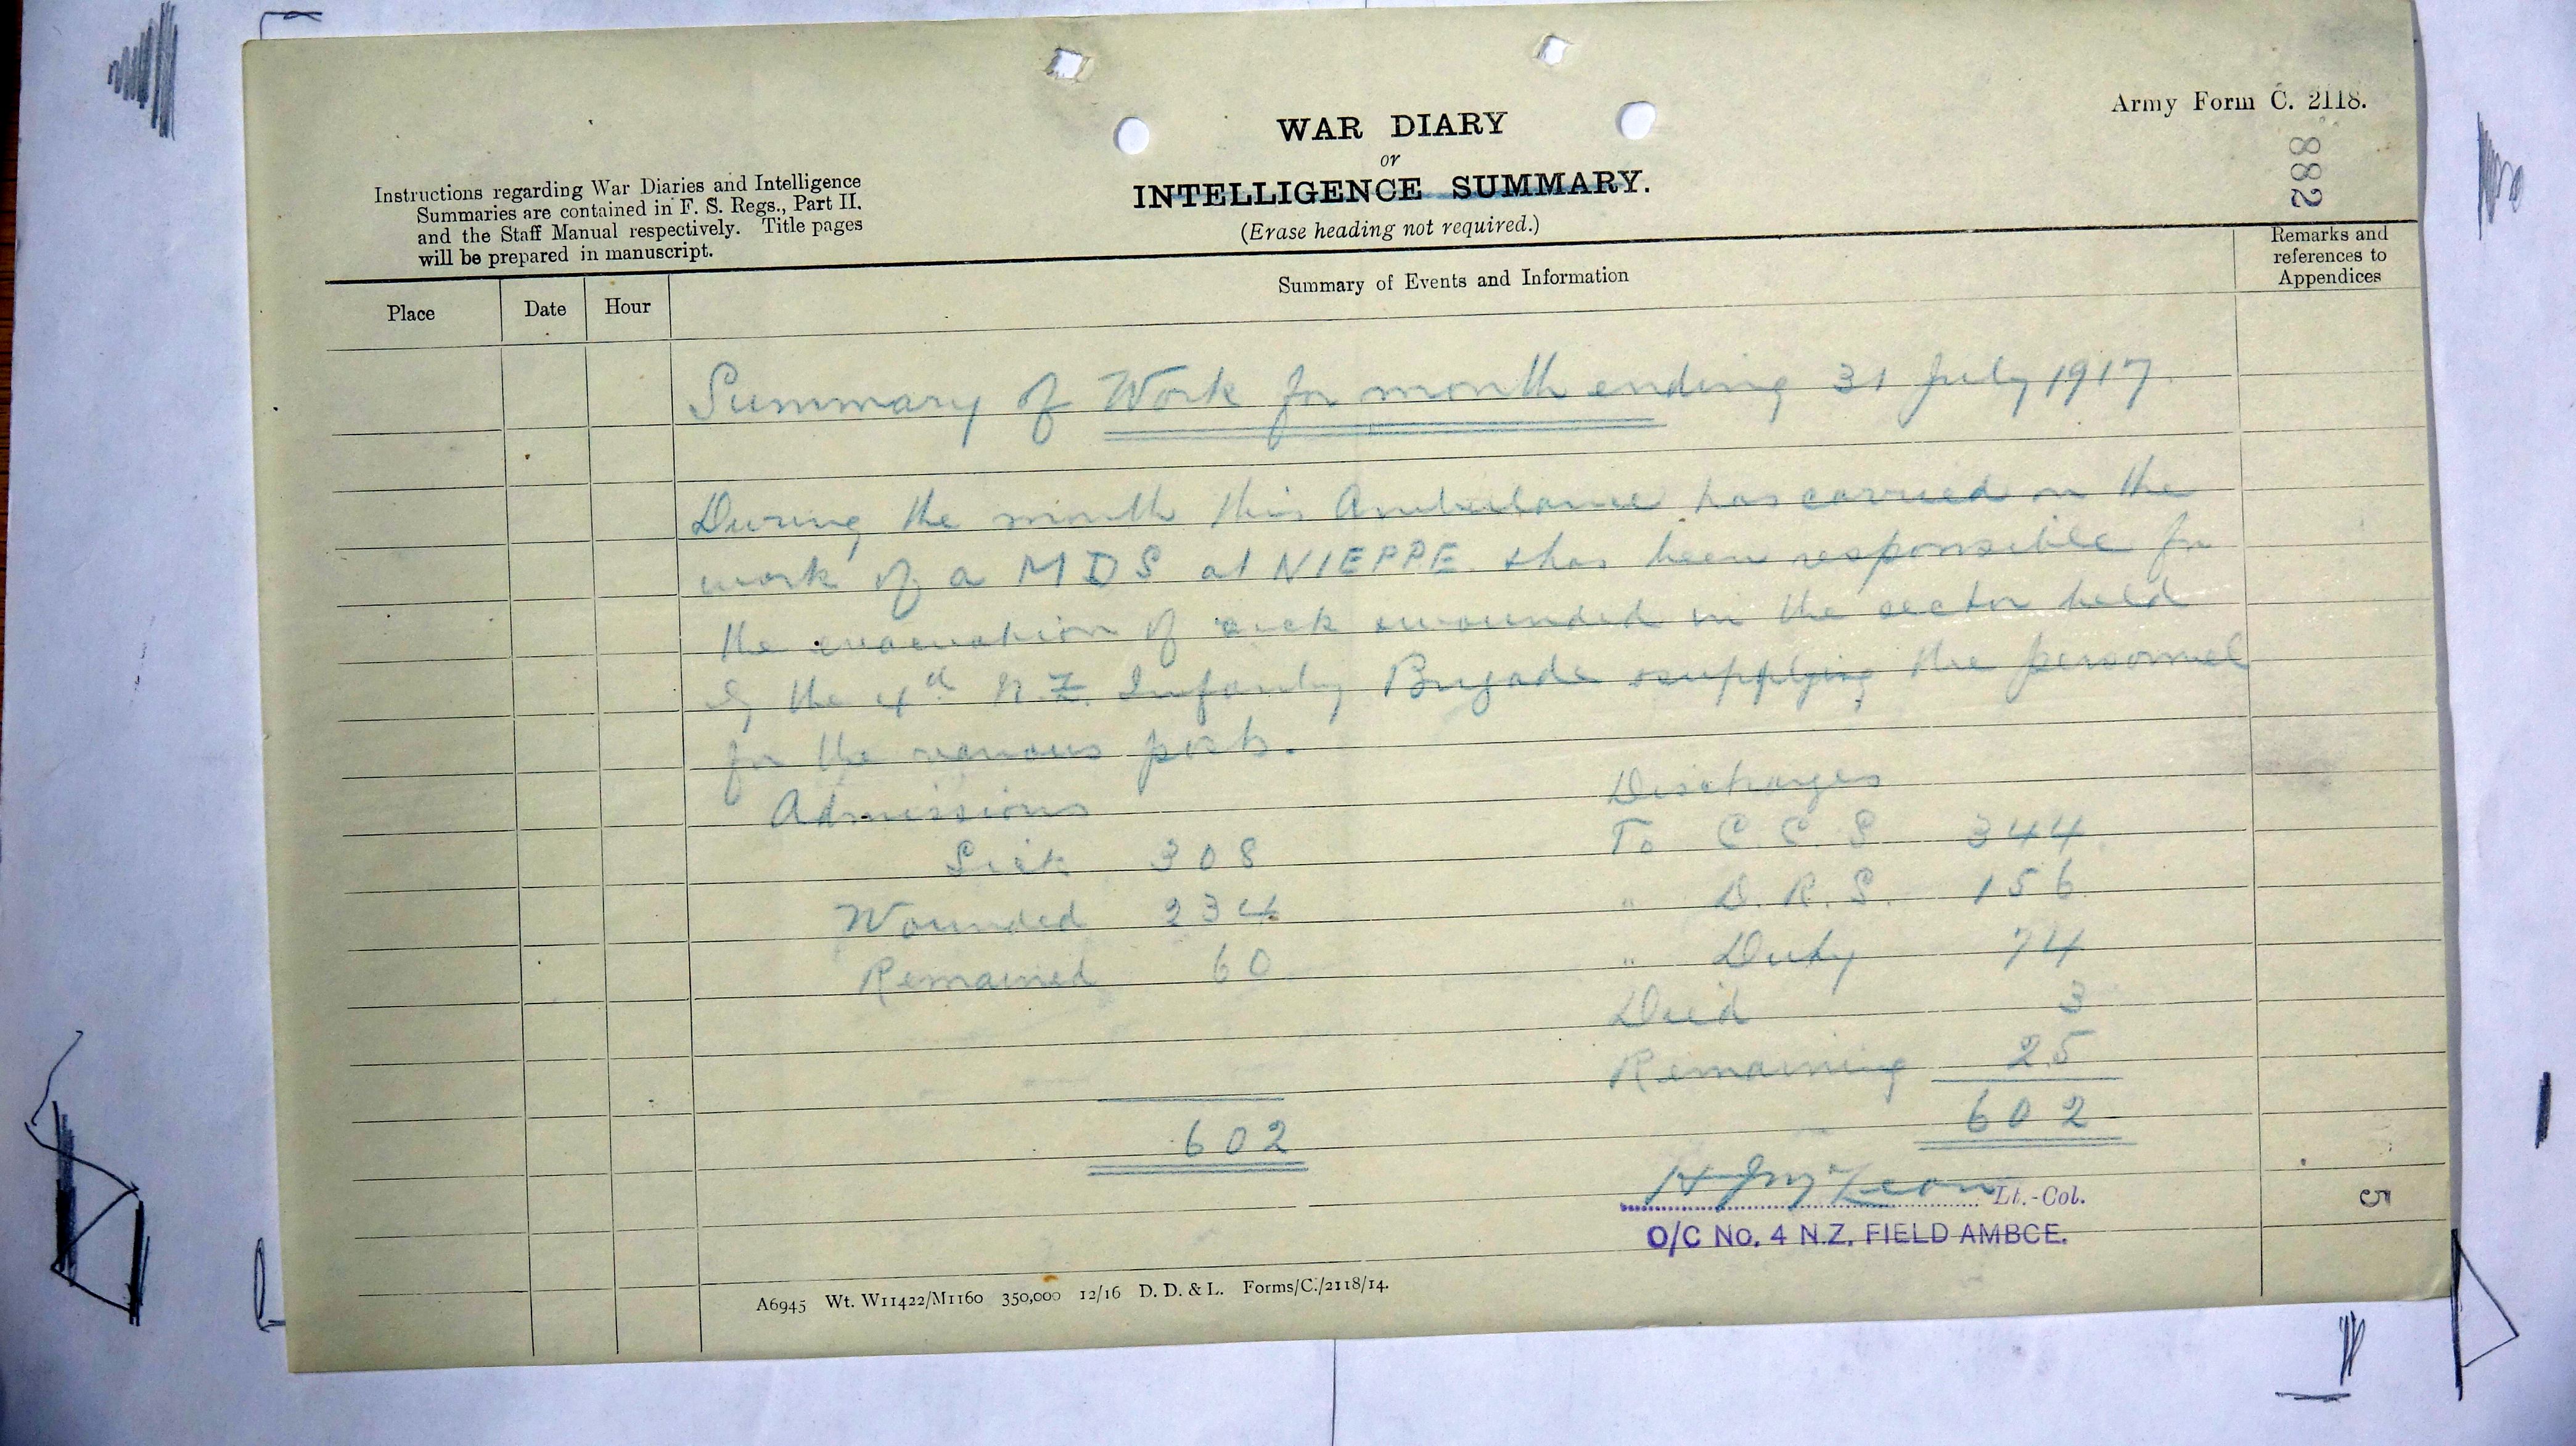 Army Form C. 2118.
882
WAR DIARY
or
INTELLIGENCE SUMMARY.
(Erase heading not required.)
Instructions regarding War Diaries and Intelligence
Summaries are contained in F. S. Regs., Part II.
and the Staff Manual respectively. Title pages
will be prepared in manuscript.
Place
Date
Hour
Summary of Events and Information
Remarks and
references to
Appendices
Summary of Work for month ending 31 July 1917.
During the month this Ambulance has carried on the
work of a M D S at NIEPPE. & has been responsible for
the evacuation of sick & wounded in the sector held
by the 4th N.Z. Infantry Brigade & supplying the personnel
for the various posts.
Admissions
Sick 308
Wounded 234
Remained 60
602
Discharges
To C. C. S. 344
" D. R. S. 156
" Duty 74
Died 3
Remaining 25
602
Lt.-Col.
O/C No. 4 N.Z. FIELD AMBCE.
5
A6945 Wt. W11422/M1160 350,000 12/16 D. D. & L. Forms/C./2118/14.